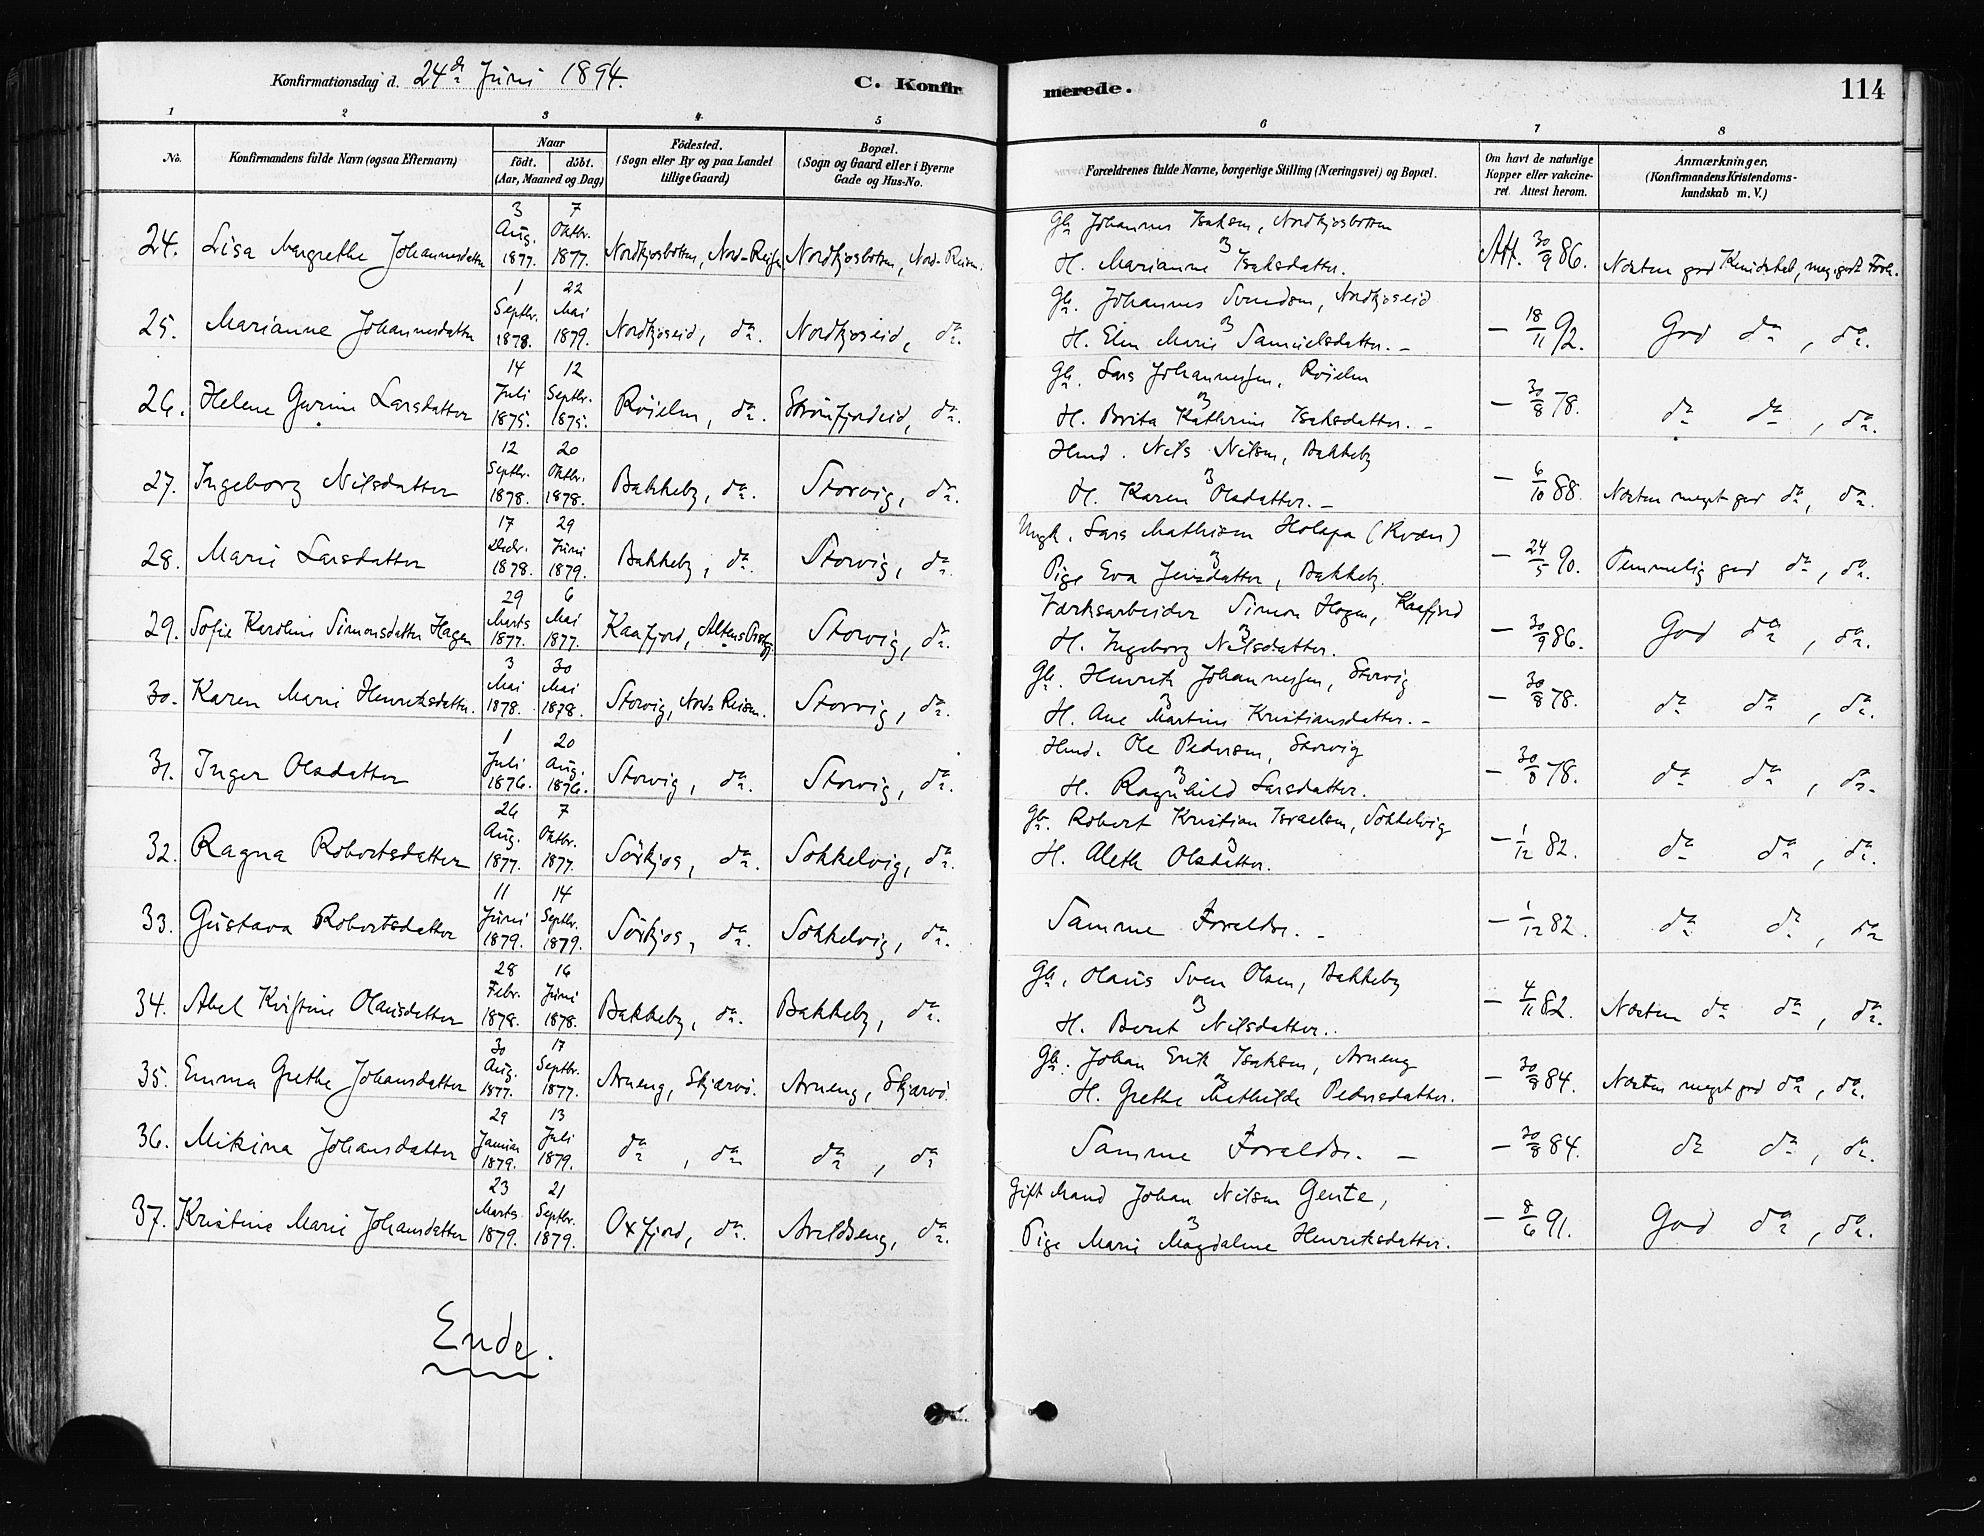 Konfirmationsdag d. 24de Juni 1894.
C. Konfirmerede.
114
1 2 3 4 5 6 7 8
No.
Konfirmandens fulde Navn (ogsaa Efternavn)
Naar
födt. döbt.
(Aar, Maaned og Dag)
Födested.
(Sogn eller By og paa Landet
tillige Gaard)
Bopæl.
(Sogn og Gaard eller i Byerne
Gade og Hus-No.
Forældrenes fulde Navne, borgerlige Stilling (Næringsvei) og Bopæl.
Om havt de naturlige
Kopper eller vakcine-
ret. Attest herom.
Anmærkninger,
(Konfirmandens Kristendoms-
kundskab m. V.)
24. Lisa Margrethe Johannesdatter 3 Aug. 1877. 7 Oktbr. 1877. Nordkjosbotten, Nord-Reisen Nordkjosbotten, Nord-Reisen.
Gb. Johannes Isaksen, Nordkjosbotten
H. Marianne Isaksdatter. Att. 30/9 86. Næsten god Kundskab, meg. godt Forh.
25. Marianne Johannesdatter 1 Septbr. 1878. 22 Mai 1879. Nordkjoseid, do. Nordkjoseid, do.
Gb. Johannes Svendsen, Nordkjoseid
H. Elen Marie Samuelsdatter. — — 18/11 92. God do, do.
26. Helene Gurine Larsdatter 14 Juli 1875. 12 Septbr. 1875. Röielen, do. Storfjordeid, do.
Gb. Lars Johannessen, Röielen
H. Brita Kathrine Isaksdatter. — — 30/8 78. do do, do.
27. Ingeborg Nilsdatter 12 Septbr. 1878. 20 Oktbr. 1878. Bakkeby, do. Storvig, do.
Hmd. Nils Nilsen, Bakkeby
H. Karen Olsdatter. — — 6/10 88. Næsten meget god do, do.
28. Marie Larsdatter 17 Decbr. 1878. 29 Juni 1879. Bakkeby, do. Storvig, do.
Ungk. Lars Mathisen Holapa (Kvæn)
Pige Eva Jensdatter, Bakkeby. — 24/5 90. Temmelig god do, do.
29. Sofie Karoline Simonsdatter Hagen 29 Marts 1877. 6 Mai 1877. Kaafjord, Altens Prstgj. Storvig, do.
Værksarbeider Simon Hagen, Kaafjord
H. Ingeborg Nilsdatter. — 30/9 86. God do, do.
30. Karen Marie Henriksdatter. 3 Mai 1878. 30 Mai 1878. Storvig, Nord-Reisen. Storvig, do.
Gb. Henrik Johannessen, Storvig
H. Ane Martine Kristiansdatter. — — 30/8 78. do do, do.
31. Inger Olsdatter 1 Juli 1876. 20 Aug. 1876. Storvig, do. Storvig, do.
Hmd. Ole Pedersen, Storvig
H. Ragnhild Larsdatter. — 30/8 78. do do, do.
32. Ragna Robertsdatter 26 Aug. 1877. 7 Oktbr. 1877. Sörkjos, do. Sokkelvig, do.
Gb. Robert Kristian Israelsen, Sokkelvig
H. Aleth Olsdatter. — 1/12 82. do do, do.
33. Gustava Robertsdatter 11 Juni 1879. 14 Septbr. 1879. Sörkjos, do. Sokkelvig, do.
Samme Forældre. — — 1/12 82. do do, do
34. Abel Kristine Olausdatter 28 Febr. 1878. 16 Juni 1878. Bakkeby, do. Bakkeby, do.
Gb. Olaus Sven Olsen, Bakkeby
H. Beret Nilsdatter. — 4/11 82. Næsten do do, do.
35. Emma Grethe Johansdatter 30 Aug. 1877. 17 Septbr. 1877. Arneng, Skjærvö. Arneng, Skjærvö.
Gb. Johan Erik Isaksen, Arneng
H. Grethe Mathilde Pedersdatter. — 30/8 84. Næsten meget god do, do.
36. Mikina Johansdatter 29 Januar 1879. 13 Juli 1879. do, do do, do
Samme Forældre. — — 30/8 84. do do, do.
37. Kristine Marie Johansdatter 23 Marts 1879. 21 Septbr. 1879. Oxfjord, do. Arildseng, do.
Gift Mand Johan Nilsen Gente,
Pige Marie Magdalene Henriksdatter. — 8/6 91. God do, do.
Ende.